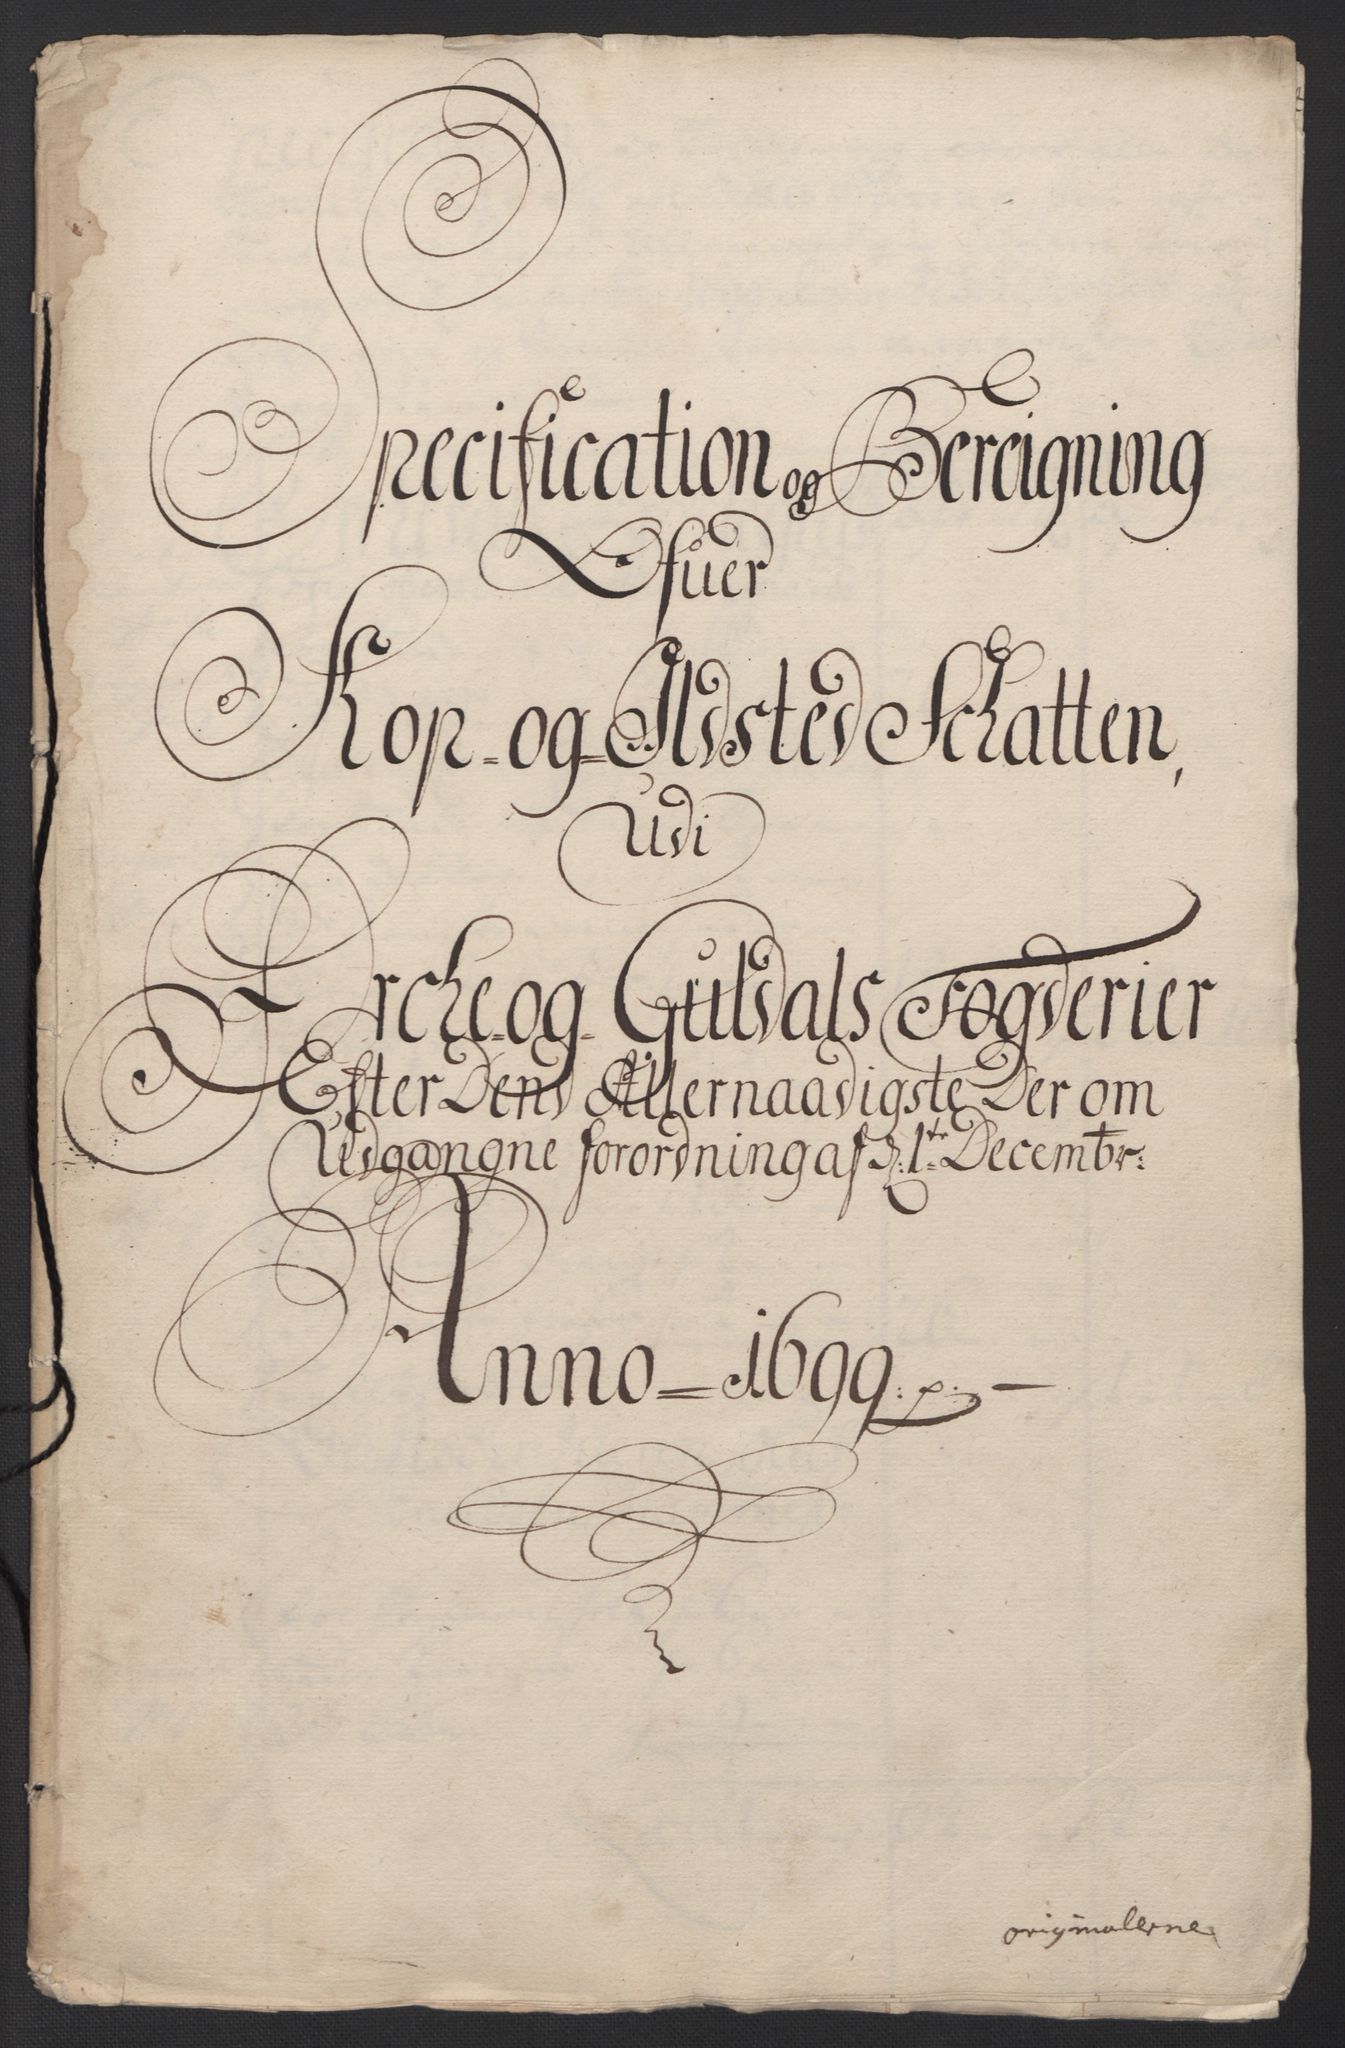 Specification og Bereigning
Ofuer
Kop- og Ildsted Schatten,
Udi
Orche- og Guldals Fogderier
Efter Dend Allernaadigste Der om
Udgangne forordning af d: 1te Decembr:
Anno 1699
originalerne